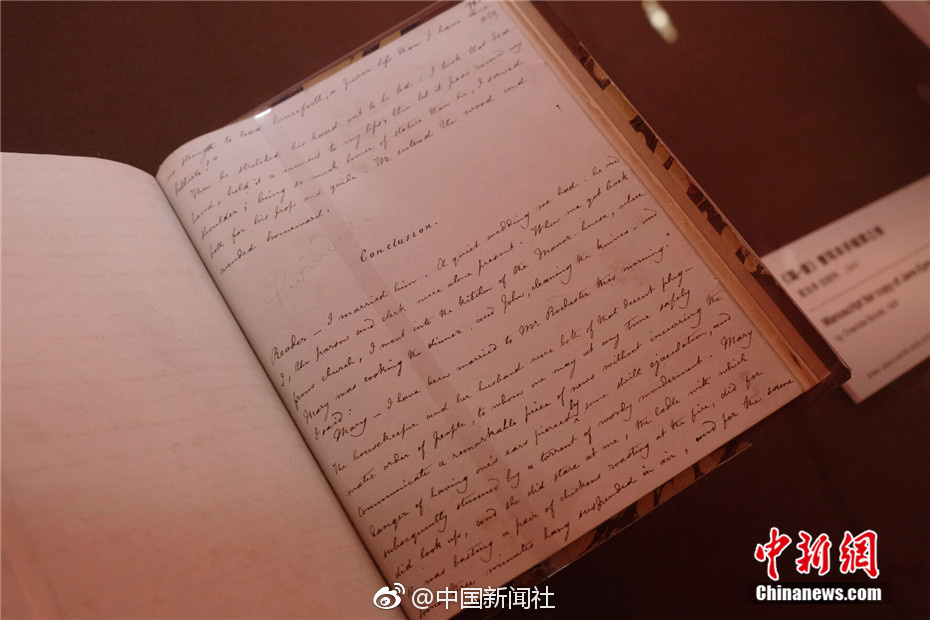 strength to lead henceforth, a purer life than I have done
hitherto!"
Then he stretched his hand out to be led: I took that dear
hand, held it a moment to my lips, then let it pass round my
shoulder; being so much lower of stature than he, I served
both for his prop and guide. We entered the wood and
wended homeward.
Conclusion.
Reader — I married him. A quiet wedding we had: he and
I, the parson and clerk were alone present. When we got back
from church, I went into the kitchen of the Manor-house, where
Mary was cooking the dinner, and John, cleaning the knives — and
I said:
"Mary — I have been married to Mr Rochester this morning."
The housekeeper and her husband were both of that decent phleg-
matic order of people, to whom one may at any time safely
communicate a remarkable piece of news without incurring the
danger of having one's ears pierced by some shrill ejaculation, and
subsequently stunned by a torrent of wordy wonderment. Mary
did look up, and she did stare at me, the ladle with which
was basting a pair of chickens roasting at the fire, did for
some three minutes hang suspended in air, and for the same
Manuscript fair copy of Jane Eyre
by Charlotte Brontë, 1847
中新网
Chinanews.com
@中国新闻社